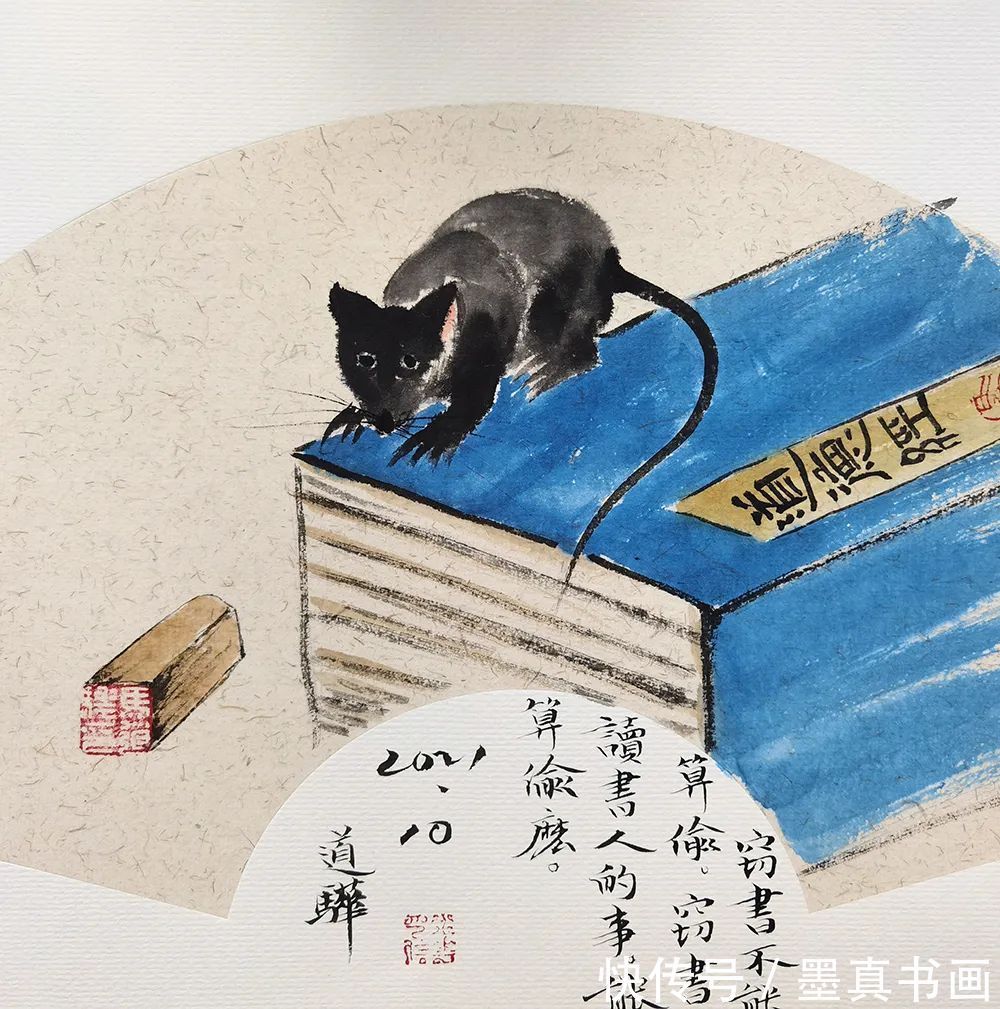 窃書不能
算偷。窃書
讀書人的事。能
算偷麽。
2021.10
道驊
快传号 / 墨真书画